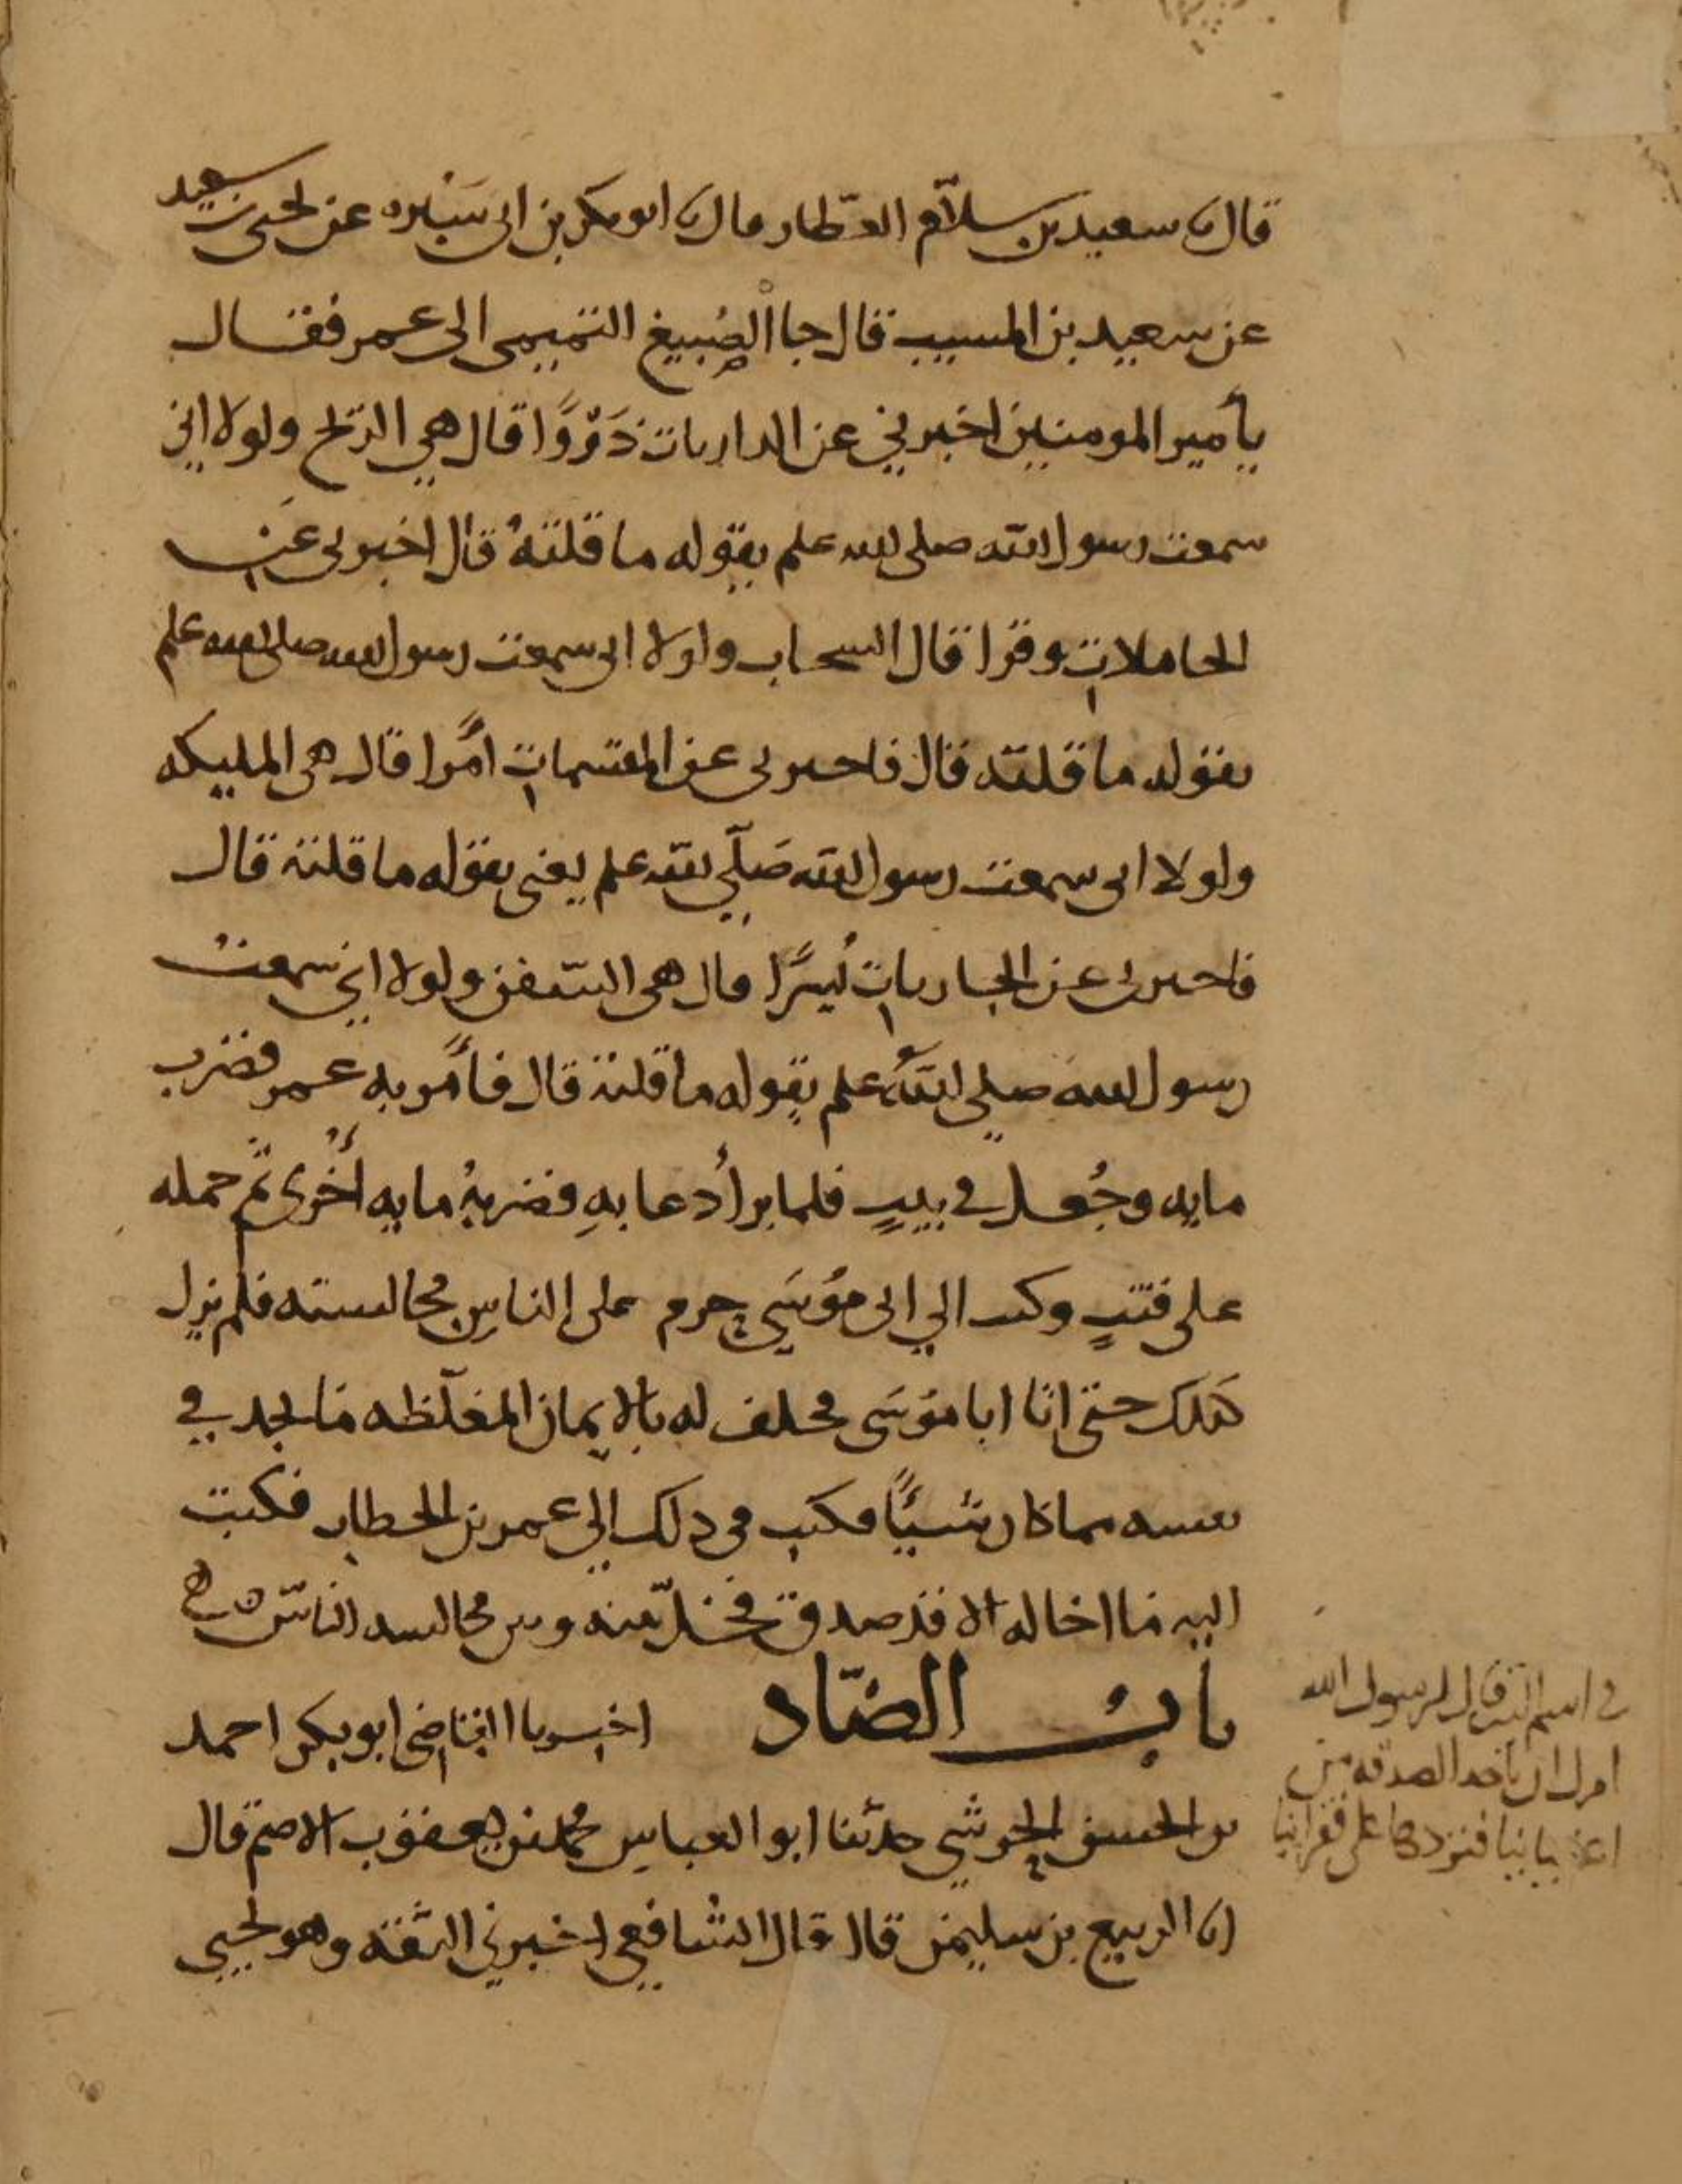 قال نا سعيد بن سلام العطار قال نا ابو بكر بن ابي سبره عن يحيى بن سعيد
عن سعيد بن المسيب قال جا الصبيغ التميمي الى عمر فقال
يأمير المومنين اخبرني عن الداريات ذَرْوًا قال هي الريح ولولا اني
سمعت رسول الله صلى الله علم يقوله ما قلتهُ قال اخبرني عن
الحاملات وقرا قال السحاب ولولا اني سمعت رسول الله صلى الله علم
يقوله ما قلته قال فاخبرني عن المقسمات امرًا قال هي المليكه
ولولا اني سمعت رسول الله صَلّي الله علم يعني يقوله ما قلته قال
فاخبرني عن الجاريات يُسرًا قال هي السفن ولولا اني سمعت
رسول الله صلي الله علم يقوله ما قلته قال فأمر به عمر فضرب
مايه وجُعل في بيتٍ فلما برأ دعا بهِ فضربهُ مايه أخرى ثم حمله
على قتبٍ وكتب الي ابي موُسَي حرم على الناسِ مجالسته فلم يزل
كذلك حتى اتا ابا موُسَى فحلف له بالايمان المغلّظه ما يجد في
نفسه مما كان شيئًا فكتب في ذلك الي عمر بن الخطاب فكتب
اليه ما اخاله الا قد صدق فخلّ بينه وبين مجالسه الناس
باب الضّاد اخبرنا القاضي ابو بكر احمد
بن الحسن الحرشي حدثنا ابو العباس محمد بن يعقوب الاصم قال
انا الربيع بن سليمن قال قال الشافعي اخبرني الثقه وهو يحيى
في اسم الله قال لرسول الله
امرك ان ناخد الصدقه من
اغنيائنا فتردها على فقرائنا